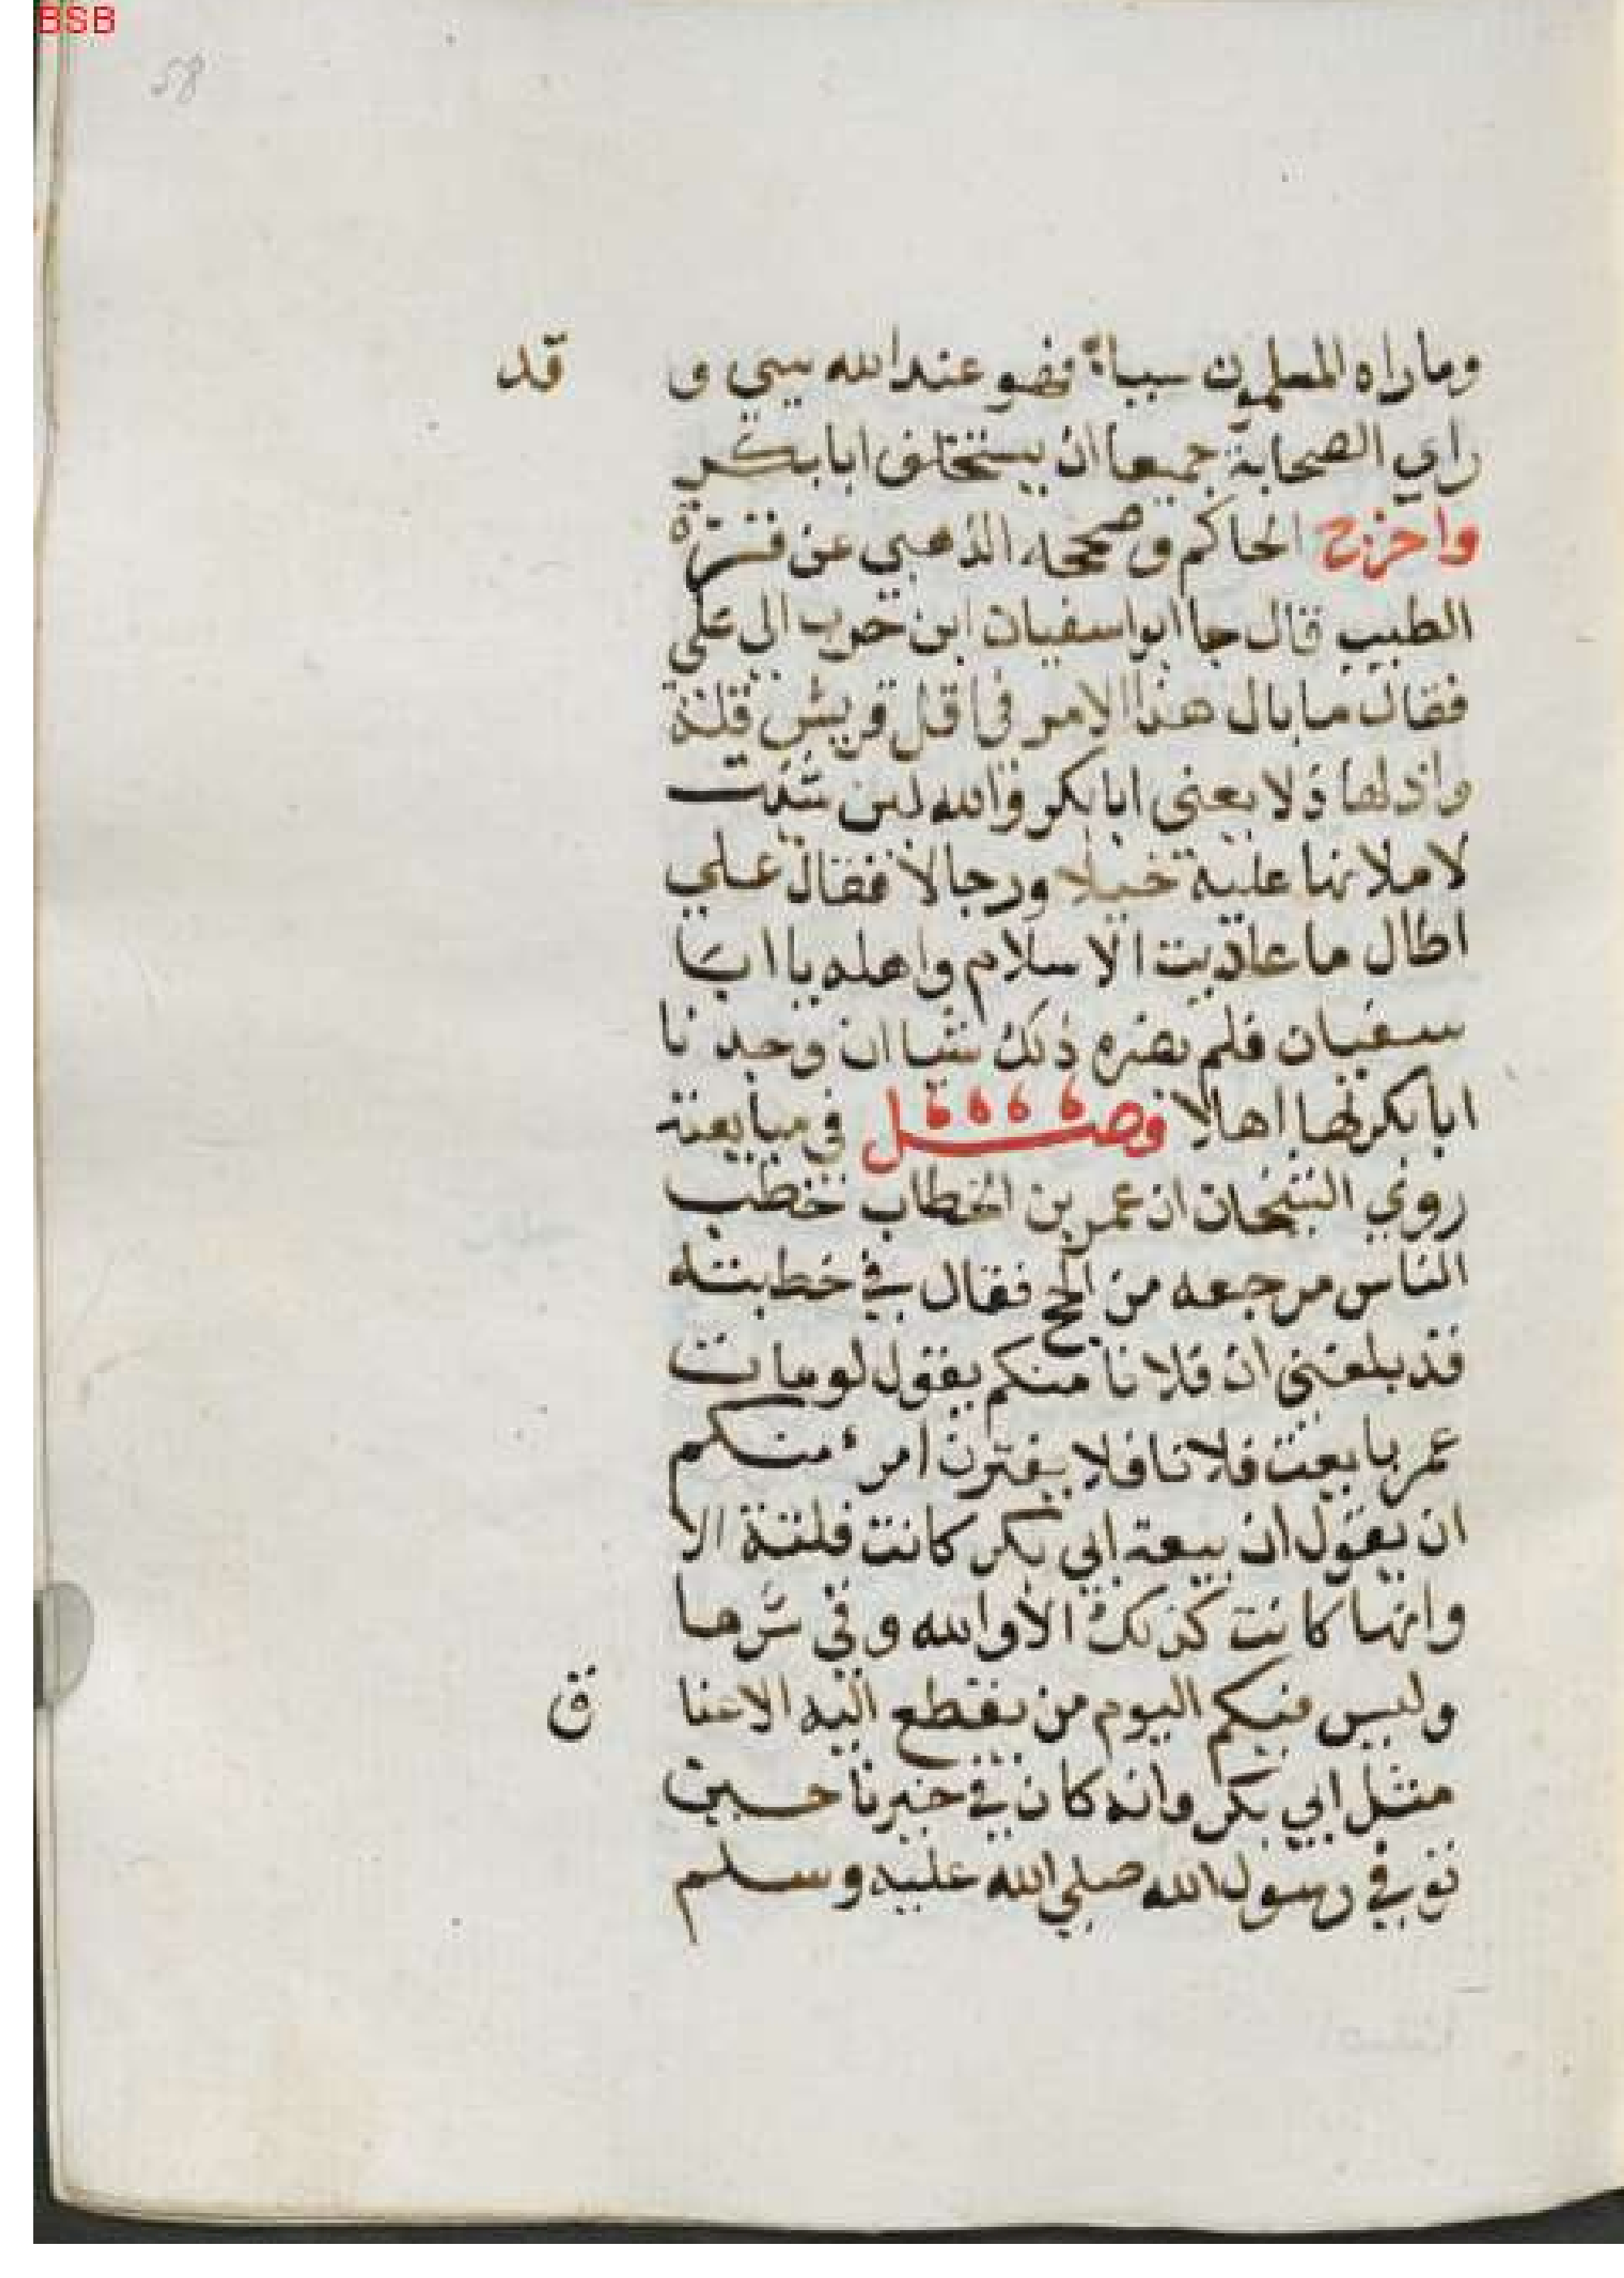 BSB
58
وماراه المسلمون سياء فهو عند الله سيى و قد
راي الصحابة جميعا ان يستخلف ابا بكر
واخرج الحاكم وصححه الذهبي عن مرة
الطيب قال جا ابوا سفيان ابن حرب الي علي
فقال ما بال هذا الامر في اقل قريش قلة
واذلها ذلا يعني ابا بكر والله لين شئت
لاملانها علية خيلا ورجالا فقال علي
اطال ما عاديت الاسلام واهله يا ابا
سفيان فلم يضره ذلك شيا ان وجدنا
ابا بكر لها اهلا فصل في مبايعته
روي الشيخان ان عمر بن الخطاب خطب
الناس مرجعه من الحج فقال في خطبته
قد بلغني ان فلانا منكم يقول لو مات
عمر بايعت فلانا فلا يغترن امرء منكم
ان يقول ان بيعة ابي بكر كانت فلتة الا
وانها كانت كذلك الا والله وقي شرها
وليس فيكم اليوم من يقطع اليه الاعنا ق
مثل ابي بكر وانه كان في خيرنا حين
توفي رسول الله صلي الله عليه وسلم